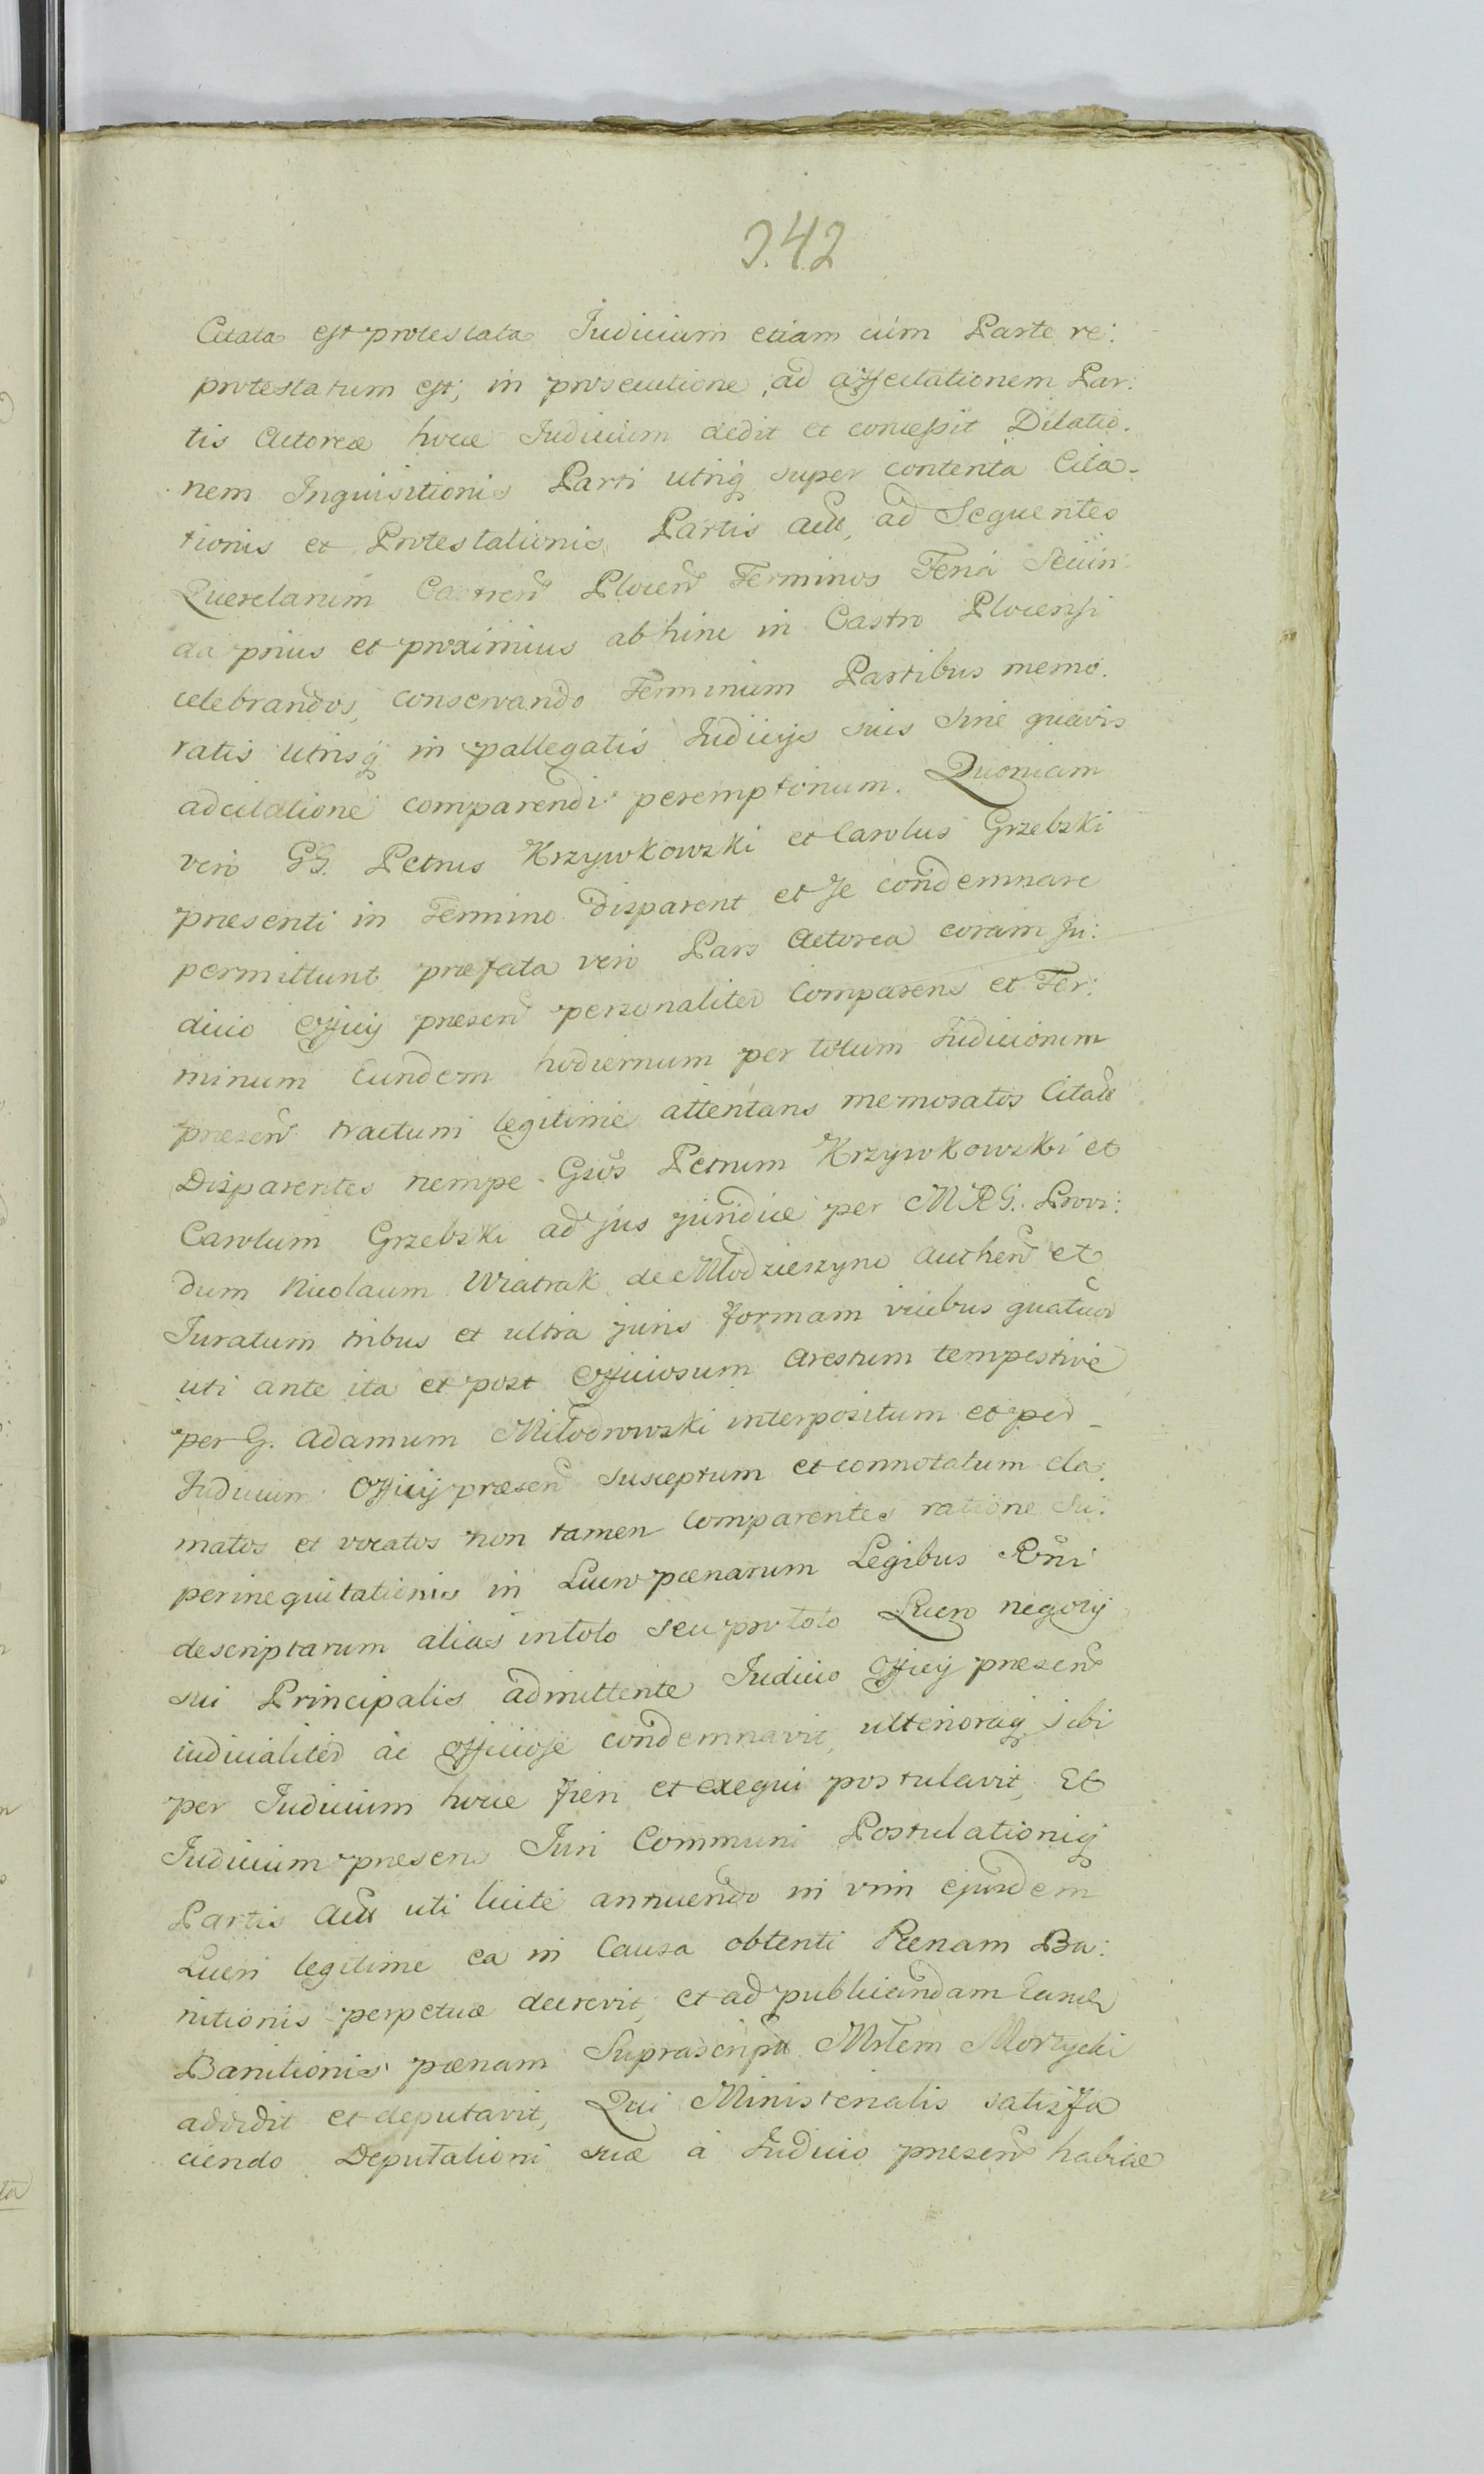 342
Citata est protestata Judicium etiam cum Parte re:
protestatum est; in prosecutione, ad affectationem Par:
tis Actoreæ hocce Judicium dedit et concessit Dilatio.
nem Inquisitionis Parti utriq super contenta Cita-
tionis et Protestationis Partis Act, ad Sequentes
Querelarum Castren Plocen Terminos Feria Secun
da prius et proximius ab hinc in Castro Plocensi
celebrandos, conservando Terminum Partibus memo.
ratis utrisq in pallegatis Judicijs suis sine quavis
adcitatione comparendi peremptorium. Quoniam
vero GG. Petrus Krzywkowski et Carolus Grzebski
præsenti in Termino disparent et se condemnare
permittunt præfata vero Pars Actorea coram Ju:
dicio Officij præsen personaliter Comparens et Ter:
minum Eundem hodiernum per totum Judiciorum
præsen tractum legitime attentans memoratos Citat
Disparentes nempe Gsos Petrum Krzywkowski et
Carolum Grzebski ad jus juridice per MRG. Provi:
dum Nicolaum Wiatrak de Młodzieszyno Authen et
Juratum tribus et ultra juris formam vicibus quatuor
uti ante ita et post Officiosum Arestum tempestive
per G. Adamum Miłodrowski interpositum et per
Judicium Officij præsen susceptum et connotatum cla:
matos et vocatos non tamen Comparentes ratione Su:
perinequitationis in Lucro pœnarum Legibus Rni
descriptarum alias in toto seu pro toto Lucro negotij
sui Principalis admittente Judicio Officij præsen
iudicialiter ac officiose condemnavit, ulterioraq sibi
per Judicium hocce fieri et exequi postulavit, Et
Judicium præsens Juri Communi Postulationiq
Partis Act uti licite annuendo in vim ejusdem
Lucri legitime ea in Causa obtenti Pœnam Ba:
nitionis perpetuæ decrevit, et ad publicandam Eand
Banitionis pœnam Suprascript Mrlem Morzycki
addidit et deputavit, Qui Ministerialis satisfa
ciendo Deputationi suæ a Judicio præsen habitæ